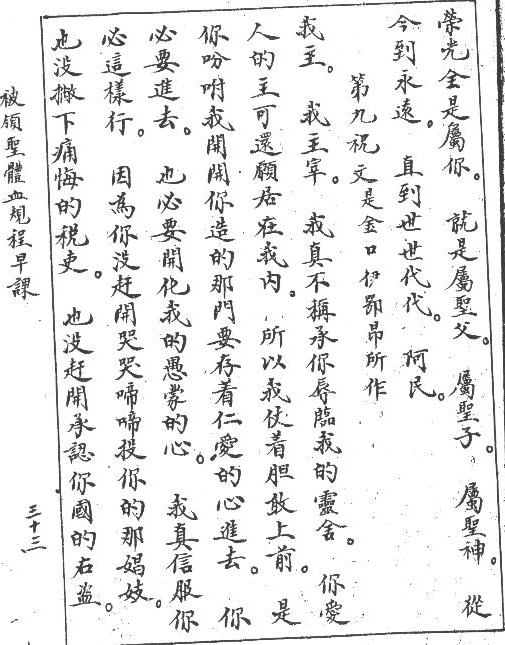 榮光全是屬你。 就是屬聖父。 屬聖子。 屬聖神。 從
今到永遠。 直到世世代代。 阿民。
第九祝文是金口伊鄂昂所作
我主。 我主宰。 我真不稱承你辱臨我的靈舍。 你愛
人的主可還願居在我內。 所以我仗着胆敢上前。 是
你吩咐我開開你造的那門要存着仁愛的心進去。 你
必要進去。 也必要開化我的愚蒙的心。 我真信服你
必這樣行。 因為你没赶開哭哭啼啼投你的那娼妓。
也没撇下痛悔的税吏。 也没赶開承認你國的右盗。
被領聖體血規程早課
三十三